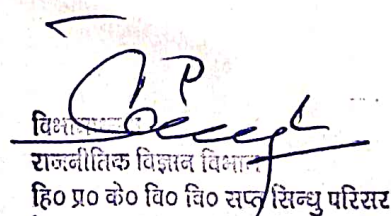 राजनीतिक विज्ञान विभाग
हि० प्र० के० वि० वि० सप्त सिन्धु परिसर